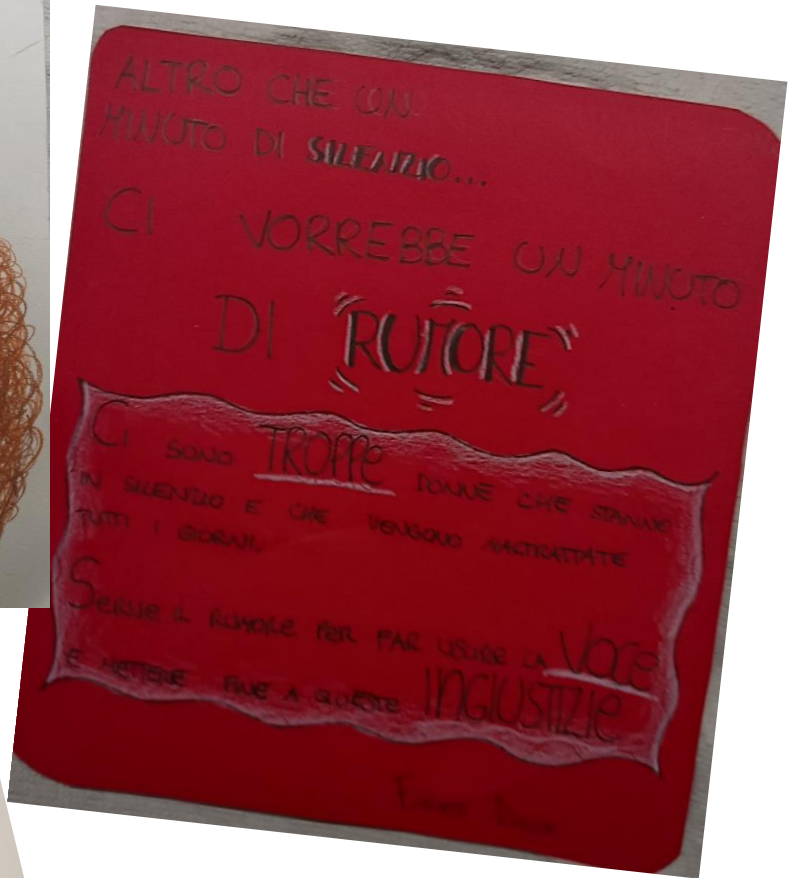 ALTRO CHE UN
MINUTO DI SILENZIO...
CI VORREBBE UN MINUTO
DI "RUMORE"
Ci SONO TROPPe DONNE CHE STANNO
IN SILENZIO E CHE VENGONO MALTRATTATE
TUTTI I GIORNI.
SeRVe IL RUMORe PeR FAR USCIRe LA VOCe
E METTERE FINE A QUESTE INGIUSTIZIe